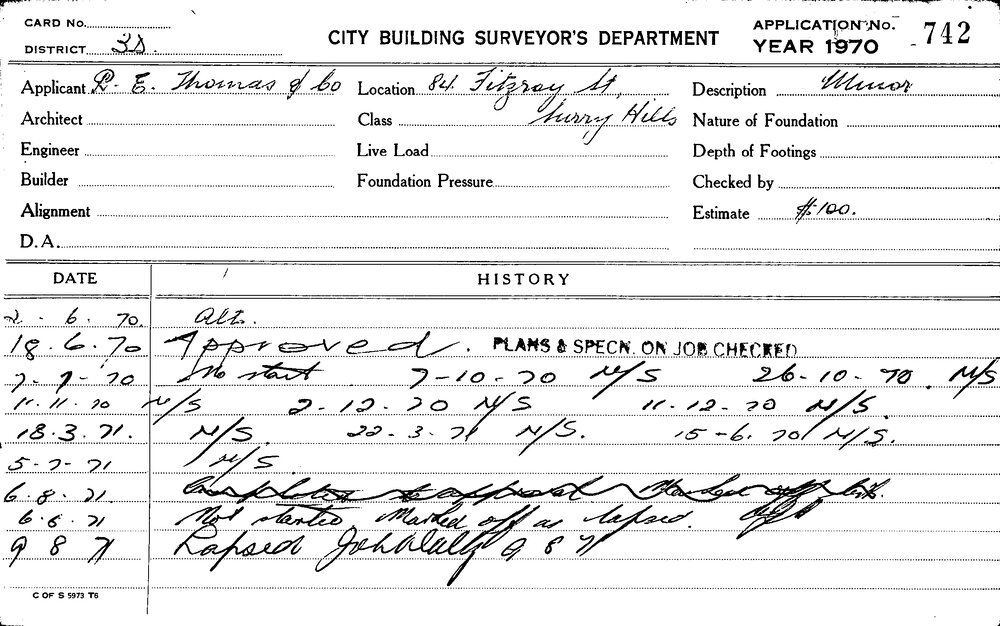 CARD No.
DISTRICT 3D.
CITY BUILDING SURVEYOR'S DEPARTMENT
APPLICATION No. 742
YEAR 1970
Applicant R. E. Thomas & Co Location 84 Fitzroy St, Description Minor
Architect Class Surry Hills Nature of Foundation
Engineer Live Load Depth of Footings
Builder Foundation Pressure Checked by
Alignment Estimate $100.
D.A.
DATE HISTORY
2 - 6. 70. Alt.
18.6.70 Approved. PLANS & SPECN. ON JOB CHECKED
7-9-70 No start 7-10-70 N/S 26-10-70. N/S
11.11.70 N/S 2-12-70 N/S 11-12-70 N/S.
18.3.71. N/S. 22-3-71 N/S. 15-6.70 N/S.
5-7-71 N/S.
6.8.71 Completed to approval Marked off
6.8.71 Not started, Marked off as lapsed.
9 8 71 Lapsed 9 8 71
C OF S 5973 T6